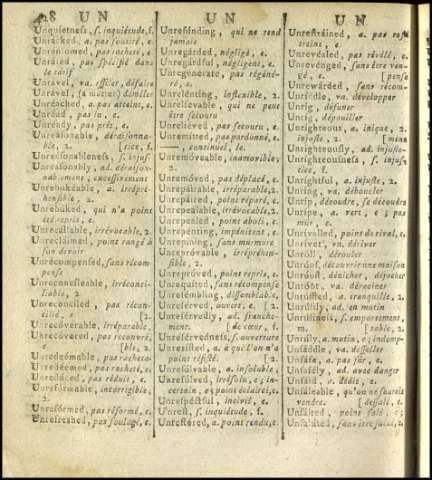 U N
U N
U N
Unquietness, s. inquiétude, f.
Unracked, a. pas soutiré, e.
Unransomed, pas racheté, e.
Unrated, pas spécifié dans
le tarif
Unravel, va. effiler, défaire
Unravel, (a matter) démêler
Unreached, a. pas atteint, e.
Unread, pas lu, e.
Unready, pas prêt, e.
Unreasonable, déraisonna-
ble, 2. [tice, f.
Unreasonableness, s. injus-
Unreasonably, ad. déraison-
nablement, excessivement
Unrebukeable, a. irrépré-
hensible, 2.
Unrebuked, qui n'a point
été repris, e.
Unrecallable, irrévocable, 2.
Unreclaimed, point rangé à
son devoir
Unrecompensed, sans récom-
pense
Unreconcileable, irréconci-
liable, 2.
Unreconciled, pas récon-
cilié, e. [2.
Unrecoverable, irréparable,
Unrecovered, pas recouvré,
[ble, 2.
Unredeemable, pas racheta-
Unredeemed, pas racheté, e.
Unreduced, pas réduit, e.
Unreformable, incorrigible,
2.
Unreformed, pas réformé, e.
Unrefreshed, pas soulagé, e.
Unrefunding, qui ne rend
jamais
Unregarded, négligé, e.
Unregardful, négligent, e.
Unregenerate, pas régéné-
ré, e.
Unrelenting, inflexible, 2.
Unrelievable, qui ne peut
être secouru
Unrelieved, pas secouru, e.
Unremitted, pas pardonné, e.
——, continuel, le.
Unremoveable, inamovible,
2.
Unremoved, pas déplacé, e.
Unrepairable, irréparable, 2.
Unrepaired, point réparé, e.
Unrepealable, irrévocable, 2.
Unrepealed, point aboli, e.
Unrepenting, impénitent, e.
Unrepining, sans murmure
Unreprovable, irrépréhen-
sible, 2.
Unreproved, point repris, e.
Unrequited, sans récompense
Unresembling, dissemblable,
Unreserved, ouvert, e. [2.
Unreservedly, ad. franche-
ment. [de cœur, f.
Unreservedness, s. ouverture
Unresisted, a. à qui l'on n'a
point résisté. [2.
Unresolvable, a. insoluble,
Unresolved, irrésolu, e; in-
certain, e; point éclairci, e.
Unrespectful, incivil, e.
Unrest, s. inquiétude, f.
Unrestored, a. point rendu, e.
Unrestrained, a. pas restr
traint, e.
Unrevealed, pas révélé, e.
Unrevenged, sans être ven-
gé, e. [pense
Unrewarded, sans récom-
Unriddle, va. développer
Unrig, défuner
Unrig, dépouiller
Unrighteous, a. inique, 2.
injuste, 2. [ment
Unrighteously, ad. injuste-
Unrighteousness, s. injus-
tice, f.
Unrightful, a. injuste, 2.
Unring, va. déboucler
Unrip, découdre, se découdre
Unripe, a. vert, e; pas
mur, e.
Unrivalled, point de rival, e.
Unrivet, vn. dériver
Unroll, dérouler
Unroof, découvrir une maison
Unroost, dénicher, déjucher
Unroot, va. déraciner
Unruffled, a. tranquille, 2.
Unrulily, ad. en mutin
Unruliness, s. emportement,
m. [table, 2.
Unruly, a. mutin, e; indomp-
Unsaddle, va. desseller
Unsafe, a. pas sûr, e.
Unsafely, ad. avec danger
Unsaid, a. dédit, e.
Unsaleable, qu'on ne sauroit
vendre. [dessalé, e.
Unsalted, point salé, e;
Unsaluted, sans être salué, 2.